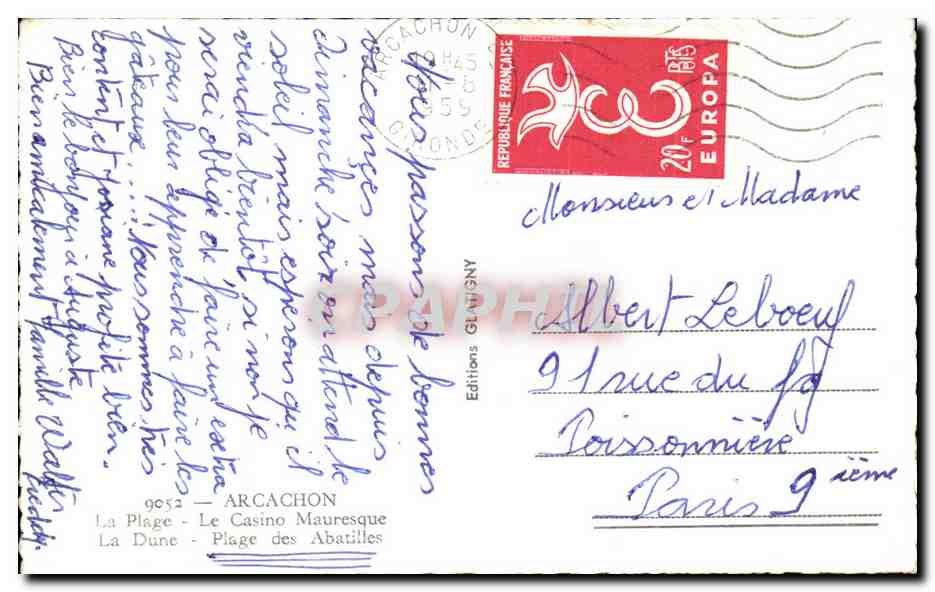 Nous passons de bonnes
vacances mais depuis
dimanche soir on attend le
soleil mais espérons qu'il
viendra bientôt si non je
serai obligé de faire un extra
pour leur apprendre à faire les
gâteaux.... Nous sommes très
content et Josiane profite bien.
Bien le bonjour à Auguste
Bien amicalement famille Walter
Freddy.
ARCACHON
18H45
GIRONDE
REPUBLIQUE FRANÇAISE
20F EUROPA
Monsieur et Madame
Albert Leboeuf
91 rue du Fg
Poissonnière
Paris 9ième
Editions GLATIGNY
CPAPHIL
9052 — ARCACHON
La Plage - Le Casino Mauresque
La Dune - Plage des Abatilles